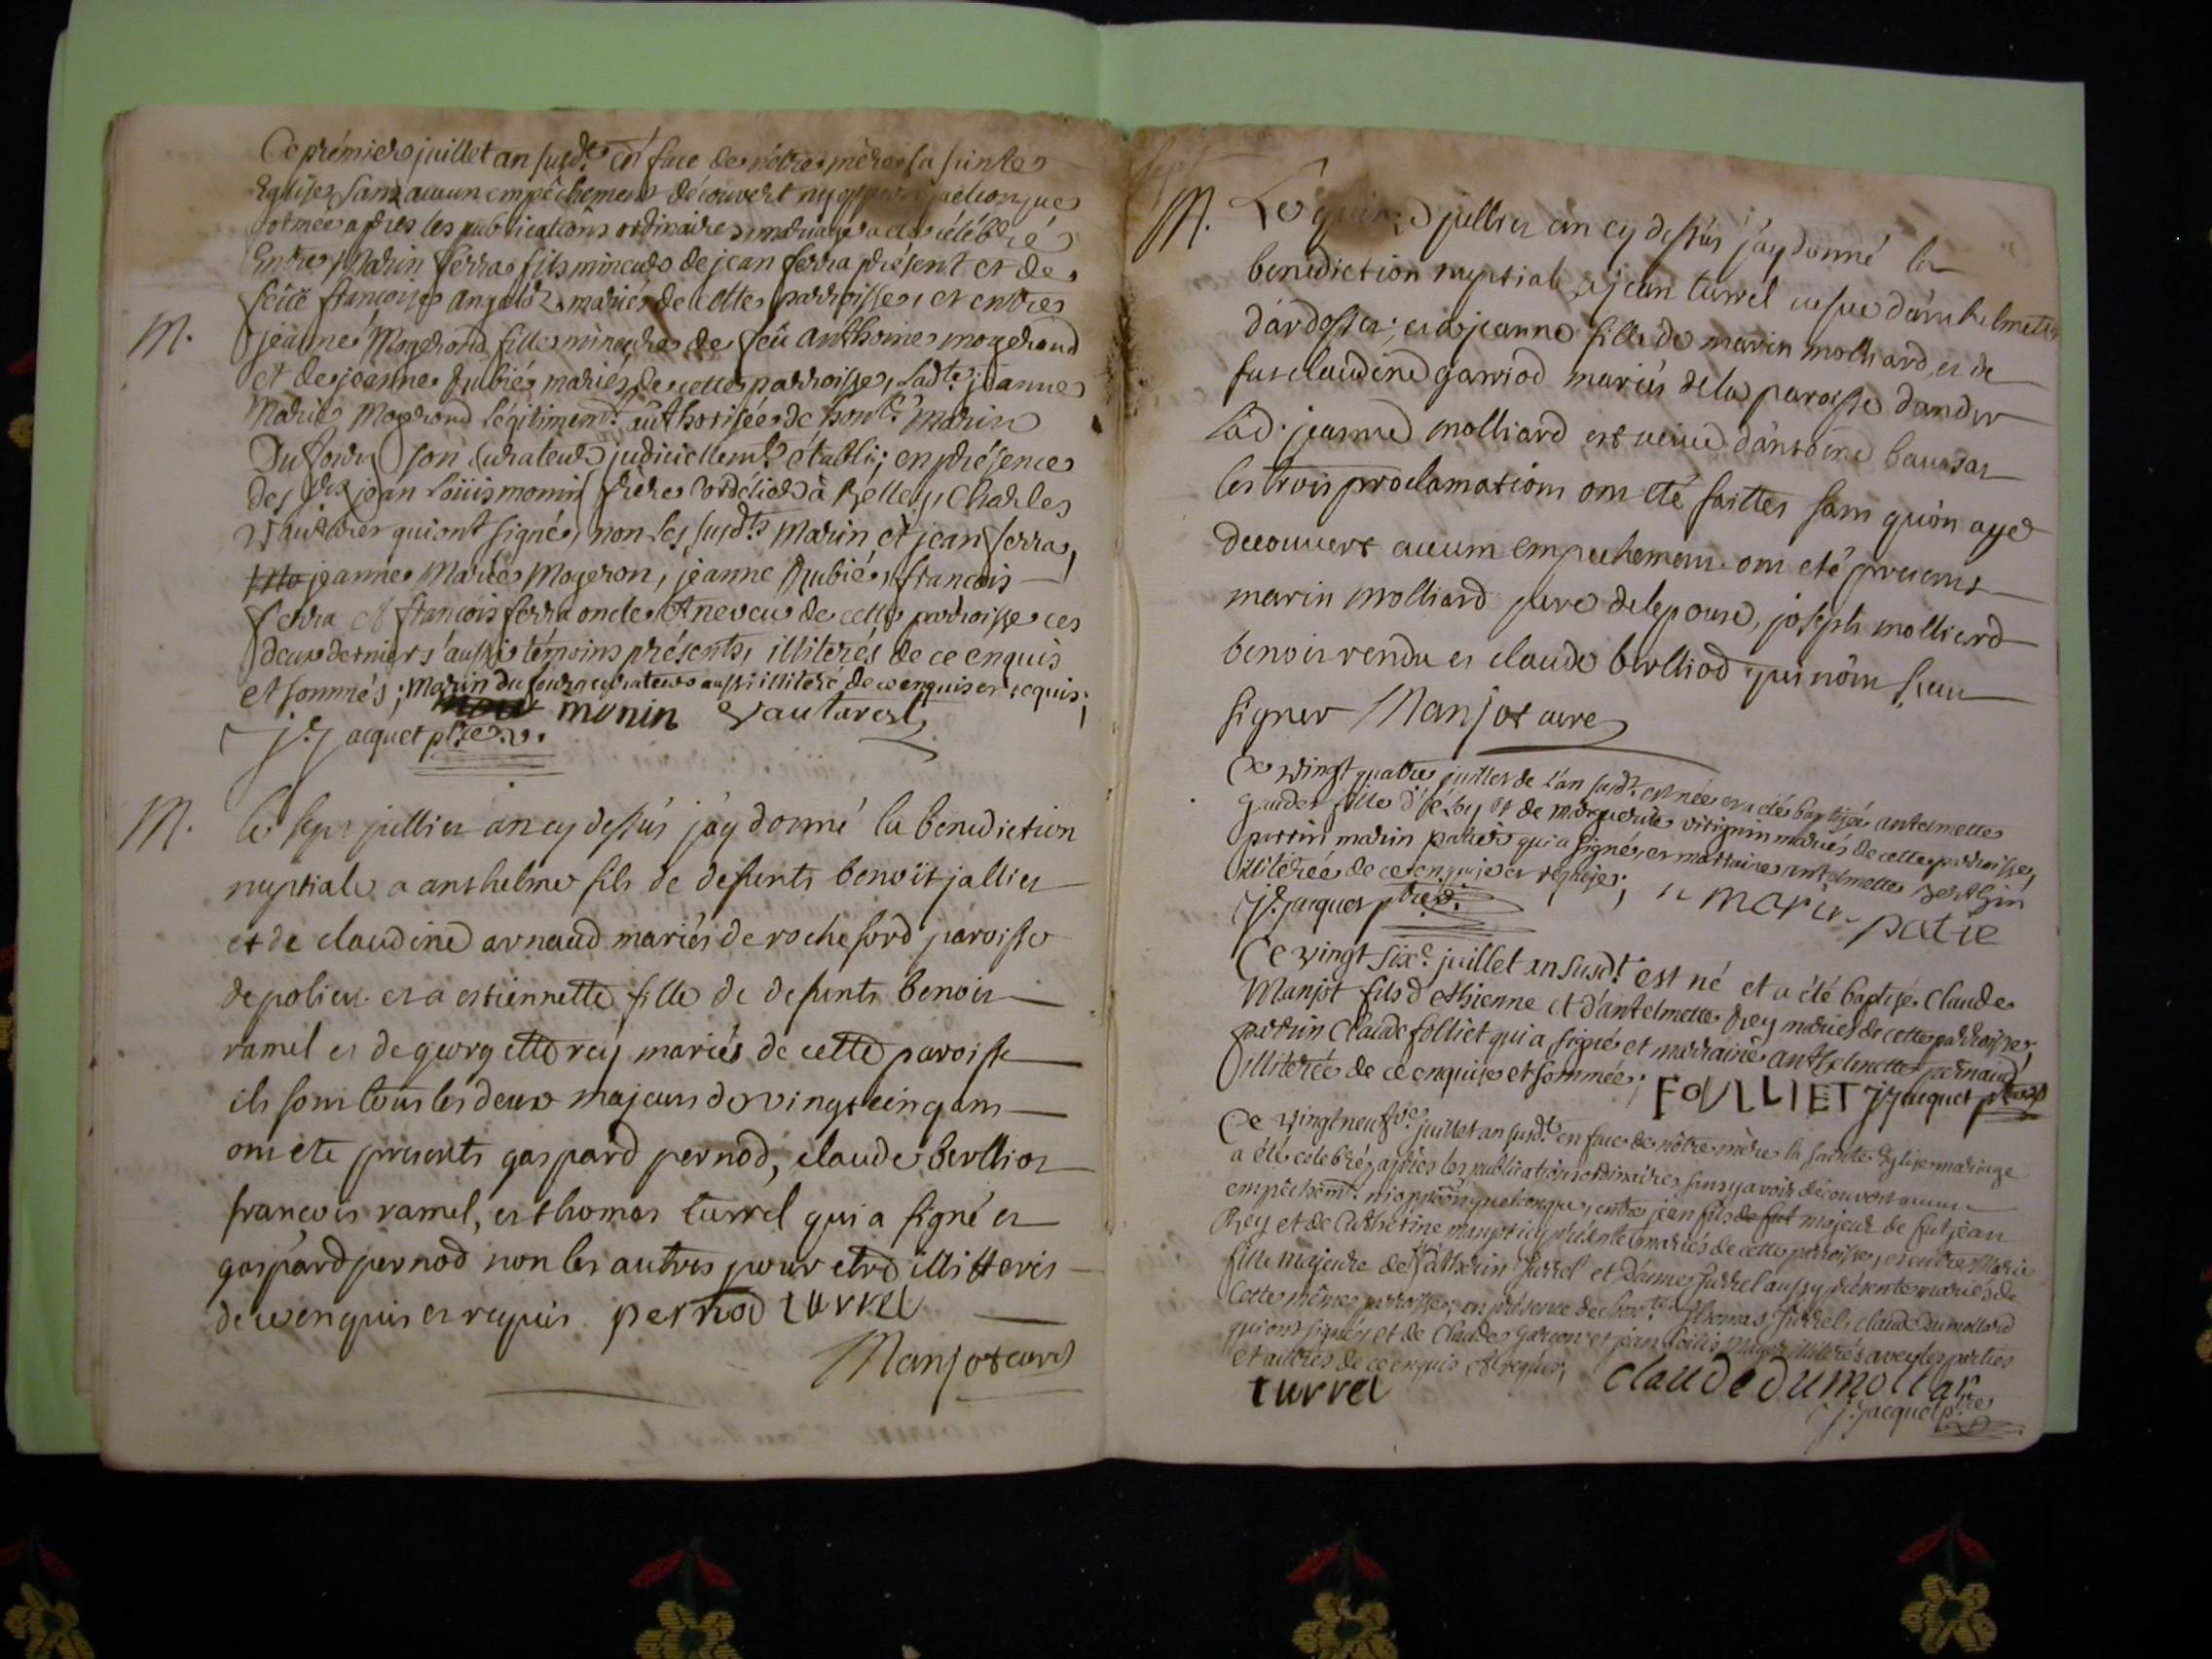 Ce prémier juillet an susdt. en face de nôtre mère la sainte
Eglise, sans aucun empêchement découvert ny quelconque
formée après les publications ordinaires mariage a été célébré
Entre Marin ferra fils mineur de jean ferra présent et de
feüe françoise mariés de cette parroisse, et entre
M. jeanne Mogerond fille mineure de feü anthoine mogerond
et de jeanne Rubié, mariés de cette parroisse, ladte. jeanne
Marie Mogerond légitimemt. authorisée de hont. Marin
Dufour son curateur judiciellemt. établi; en présence
des jean loüis monin frère Cordélier à Belley, Charles
Vautaret qui ont signé, non les susdts Marin et jean ferra,
jeanne Marie Mogeron, jeanne Rubié, francois
ferra et francois ferra oncle et neveu de cette parroisse ces
deux derniers aussi témoins présents, illiterés de ce enquis
et sommés; Marin dufour curateur aussi illiteré de ce enquis et requis;
monin Vautaret
J. Jacquet ptre. v.
M. le sept jullier an cy dessus jáy donné la benediction
nuptiale a anthelme fils de defunts benoit jallier
et de claudine arnaud mariés de rocheford paroisse
de polieu. et a estiennette fille de defunts benoir
ramel et de georgette rey mariés de cette paroisse
ils sont tous les deux majeurs de vingt cinq ans
ont ete presents gaspard pernod, claude berllior
francois ramel, et thomas turrel qui a signé et
gaspard pernod non les autres pour etre illitteris
de ce enquis et requis pernod turrel
Manjot curé
sept
M. Le jullier an cy dessus jáy donné la
benediction nuptiale a jean turrel
dárdosset; et a jeanne fille de marin molliard, et de
fut claudine garriod mariés de la paroisse dander
lad. jeanne molliard est veuve dántoine
les trois proclamations ont eté faittes sans quon aye
decouvert aucum empechement. ont eté presents
marin molliard pere de lepouse, joseph molliard
benoir rendu et claude berlliod qui nont sceu
signer Manjot curé
Ce vingt quatre juillet de l'an susdt. est née et a été baptisée antelmette
fille d' et de marguerite vitignin mariés de cette parroisse,
parrin marin patié qui a signé, et marraine antelmette
illiterée de ce enquise et requise; marin patie
J. Jacquet ptre.
Ce vingt sixe. juillet an susdt. est né et a été baptisé Claude
Manjot fils d'ethienne et d'antelmette Rey mariés de cette parroisse;
parrin Claude folliet qui a signé et marraine anthelmette pernaud
illiterée de ce enquise et sommée; FOULLIET J Jacquet ptre
Ce vingt neufve juillet an susdt. en face de nôtre mère la sainte Eglise mariage
a été celebré, après les publications ordinaires sans y avoir découvert aucun
empêchemt. ni opposition quelconque, entre jean fils de fut majeur de fut jean
Rey et de Catherine manjot icy présente mariés de cette parroisse, et entre Marie
fille majeure de Turrel et d'aimé Turrel aussy présente mariés de
cette même parroisse; en présence de hontes. thomas Turrel, claude Dumollard
qui ont signés et de Claude Garçon et jean loüis illiterés avec les parties
et autres de ce enquis et requis;
turrel claude dumollar
J. Jacquet ptre